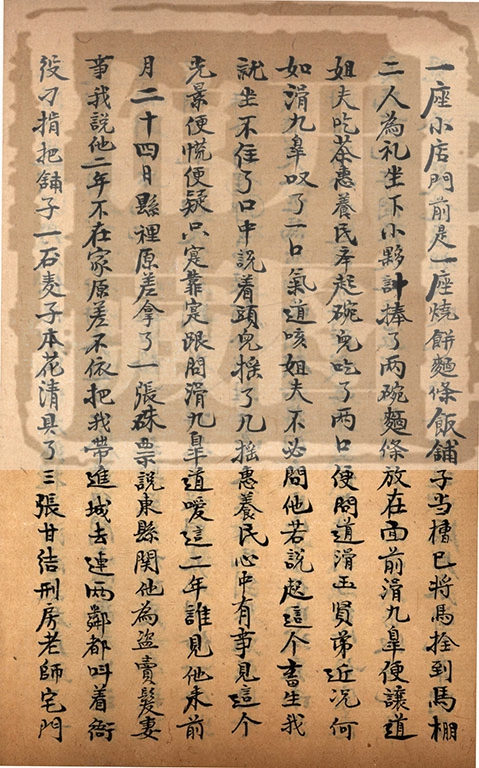 一座小店門前是一座燒餅麵條飯舖子当槽已將馬拴到馬棚
二人為礼坐下小夥計捧了兩碗麵條放在面前滑九皐便讓道
姐夫吃茶惠養民卒起碗兒吃了兩口便問道滑玉贤弟近况何
如滑九皐叹了一口氣道咳姐夫不必問他若說起這个畜生我
就坐不住了口中説着頭兒搖了几搖惠養民心中有事見這个
光景便慌便疑只寔靠寔跟問滑九皐道噯這二年誰見他来前
月二十四日縣裡原差拿了一張硃票說東縣関他為盜賣髮妻
事我說他二年不在家原差不依把我带進城去連两鄰都呌着衙
役刁掯把舖子一石麦子本花清具了三張甘结刑房老師宅門